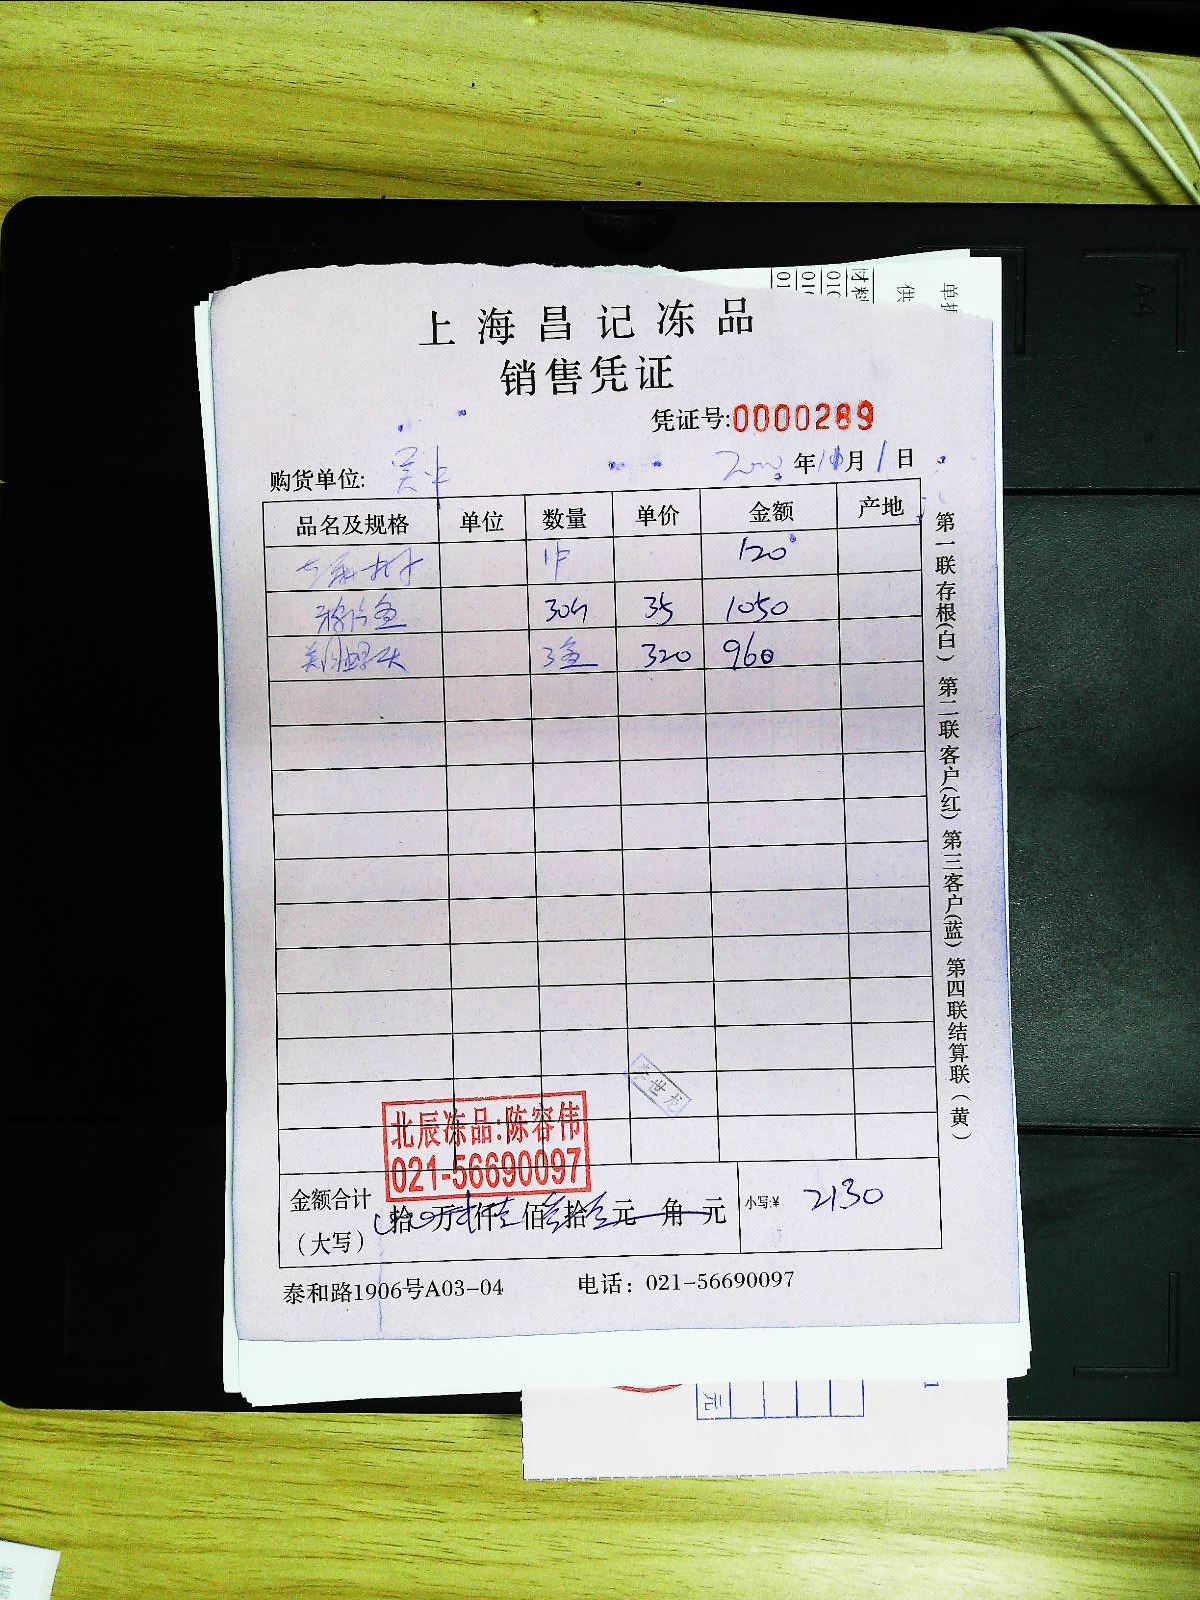 上海昌记冻品
销售凭证
凭证号:0000289
购货单位: 年 月1日
品名及规格 单位 数量 单价 金额 产地
1件 120
30 35 1050
3 320 960
李世龙
北辰冻品:陈容伟
021-56690097
金额合计
(大写)
拾 万 仟 佰 拾 元 角 元
小写:¥ 2130
泰和路1906号A03-04 电话: 021-56690097
第一联存根(白) 第二联客户(红) 第三客户(蓝) 第四联结算联(黄)
单据
供
材料
010
010
01
元
A4